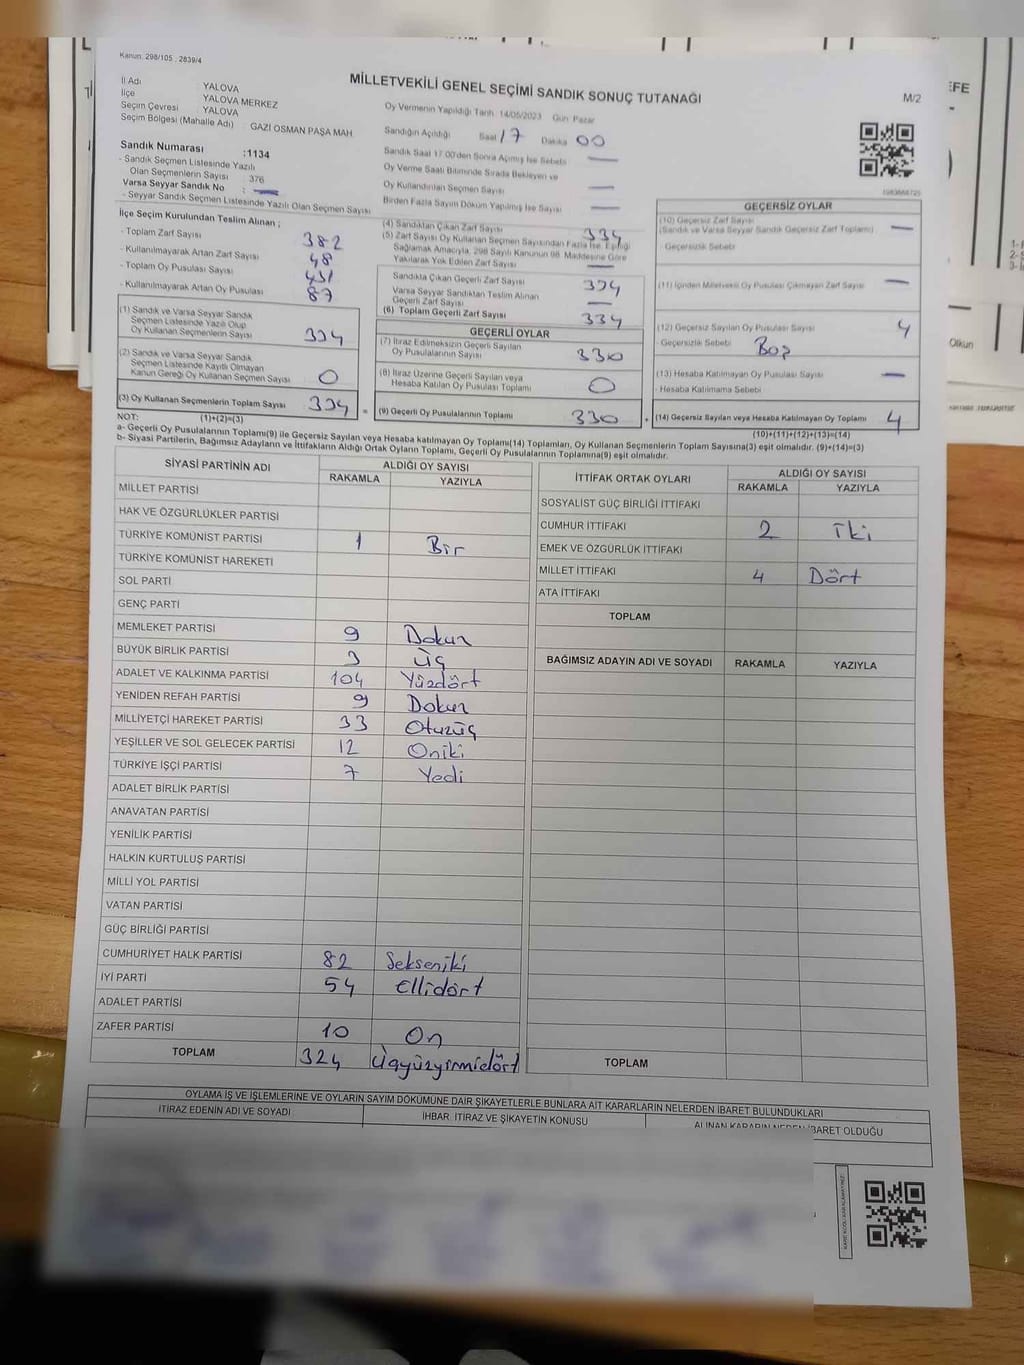 Kanun: 298/105 ; 2839/4
MİLLETVEKİLİ GENEL SEÇİMİ SANDIK SONUÇ TUTANAĞI
M/2
İl Adı : YALOVA
İlçe : YALOVA MERKEZ
Seçim Çevresi : YALOVA
Seçim Bölgesi (Mahalle Adı) : GAZI OSMAN PAŞA MAH
Oy Vermenin Yapıldığı Tarih: 14/05/2023 Gün: Pazar
Sandığın Açıldığı Saat 17 Dakika 00
Sandık Saat 17.00'den Sonra Açılmış İse Sebebi —
Oy Verme Saati Bitiminde Sırada Bekleyen ve
Oy Kullandırılan Seçmen Sayısı —
Birden Fazla Sayım Döküm Yapılmış İse Sayısı —
Sandık Numarası :1134
- Sandık Seçmen Listesinde Yazılı
Olan Seçmenlerin Sayısı : 376
Varsa Seyyar Sandık No : —
- Seyyar Sandık Seçmen Listesinde Yazılı Olan Seçmen Sayısı
İlçe Seçim Kurulundan Teslim Alınan ;
- Toplam Zarf Sayısı 382
- Kullanılmayarak Artan Zarf Sayısı 48
- Toplam Oy Pusulası Sayısı 431
- Kullanılmayarak Artan Oy Pusulası 87
(1) Sandık ve Varsa Seyyar Sandık
Seçmen Listesinde Yazılı Olup
Oy Kullanan Seçmenlerin Sayısı 334
(2) Sandık ve Varsa Seyyar Sandık
Seçmen Listesinde Kayıtlı Olmayan
Kanun Gereği Oy Kullanan Seçmen Sayısı 0
(3) Oy Kullanan Seçmenlerin Toplam Sayısı 334 =
(4) Sandıktan Çıkan Zarf Sayısı 334
(5) Zarf Sayısı Oy Kullanan Seçmen Sayısından Fazla İse, Eşitliği
Sağlamak Amacıyla, 298 Sayılı Kanunun 98. Maddesine Göre
Yakılarak Yok Edilen Zarf Sayısı —
Sandıkta Çıkan Geçerli Zarf Sayısı 334
Varsa Seyyar Sandıktan Teslim Alınan
Geçerli Zarf Sayısı —
(6) Toplam Geçerli Zarf Sayısı 334
GEÇERLİ OYLAR
(7) İtiraz Edilmeksizin Geçerli Sayılan
Oy Pusulalarının Sayısı 330
(8) İtiraz Üzerine Geçerli Sayılan veya
Hesaba Katılan Oy Pusulası Toplamı 0
(9) Geçerli Oy Pusulalarının Toplamı 330 +
GEÇERSİZ OYLAR
(10) Geçersiz Zarf Sayısı —
(Sandık ve Varsa Seyyar Sandık Geçersiz Zarf Toplamı)
- Geçersizlik Sebebi
(11) İçinden Milletvekili Oy Pusulası Çıkmayan Zarf Sayısı —
(12) Geçersiz Sayılan Oy Pusulası Sayısı 4
- Geçersizlik Sebebi Boş
(13) Hesaba Katılmayan Oy Pusulası Sayısı —
- Hesaba Katılmama Sebebi
(14) Geçersiz Sayılan veya Hesaba Katılmayan Oy Toplamı 4
NOT: (1)+(2)=(3)
(10)+(11)+(12)+(13)=(14)
a- Geçerli Oy Pusulalarının Toplamı(9) ile Geçersiz Sayılan veya Hesaba Katılmayan Oy Toplamı(14) Toplamları, Oy Kullanan Seçmenlerin Toplam Sayısına(3) eşit olmalıdır. (9)+(14)=(3)
b- Siyasi Partilerin, Bağımsız Adayların ve İttifakların Aldığı Ortak Oyların Toplamı, Geçerli Oy Pusulalarının Toplamına(9) eşit olmalıdır.
SİYASİ PARTİNİN ADI ALDIĞI OY SAYISI
RAKAMLA YAZIYLA
MİLLET PARTİSİ
HAK VE ÖZGÜRLÜKLER PARTİSİ
TÜRKİYE KOMÜNİST PARTİSİ 1 Bir
TÜRKİYE KOMÜNİST HAREKETİ
SOL PARTİ
GENÇ PARTİ
MEMLEKET PARTİSİ 9 Dokuz
BÜYÜK BİRLİK PARTİSİ 3 Üç
ADALET VE KALKINMA PARTİSİ 104 Yüzdört
YENİDEN REFAH PARTİSİ 9 Dokuz
MİLLİYETÇİ HAREKET PARTİSİ 33 Otuzüç
YEŞİLLER VE SOL GELECEK PARTİSİ 12 Oniki
TÜRKİYE İŞÇİ PARTİSİ 7 Yedi
ADALET BİRLİK PARTİSİ
ANAVATAN PARTİSİ
YENİLİK PARTİSİ
HALKIN KURTULUŞ PARTİSİ
MİLLİ YOL PARTİSİ
VATAN PARTİSİ
GÜÇ BİRLİĞİ PARTİSİ
CUMHURİYET HALK PARTİSİ 82 Sekseniki
İYİ PARTİ 54 Ellidört
ADALET PARTİSİ
ZAFER PARTİSİ 10 On
TOPLAM 324 Üçyüzyirmidört
İTTİFAK ORTAK OYLARI ALDIĞI OY SAYISI
RAKAMLA YAZIYLA
SOSYALİST GÜÇ BİRLİĞİ İTTİFAKI
CUMHUR İTTİFAKI 2 İki
EMEK VE ÖZGÜRLÜK İTTİFAKI
MİLLET İTTİFAKI 4 Dört
ATA İTTİFAKI
TOPLAM
BAĞIMSIZ ADAYIN ADI VE SOYADI RAKAMLA YAZIYLA
TOPLAM
OYLAMA İŞ VE İŞLEMLERİNE VE OYLARIN SAYIM DÖKÜMÜNE DAİR ŞİKAYETLERLE BUNLARA AİT KARARLARIN NELERDEN İBARET BULUNDUKLARI
İTİRAZ EDENİN ADI VE SOYADI İHBAR, İTİRAZ VE ŞİKAYETİN KONUSU ALINAN KARARIN NEDEN İBARET OLDUĞU
Olkun